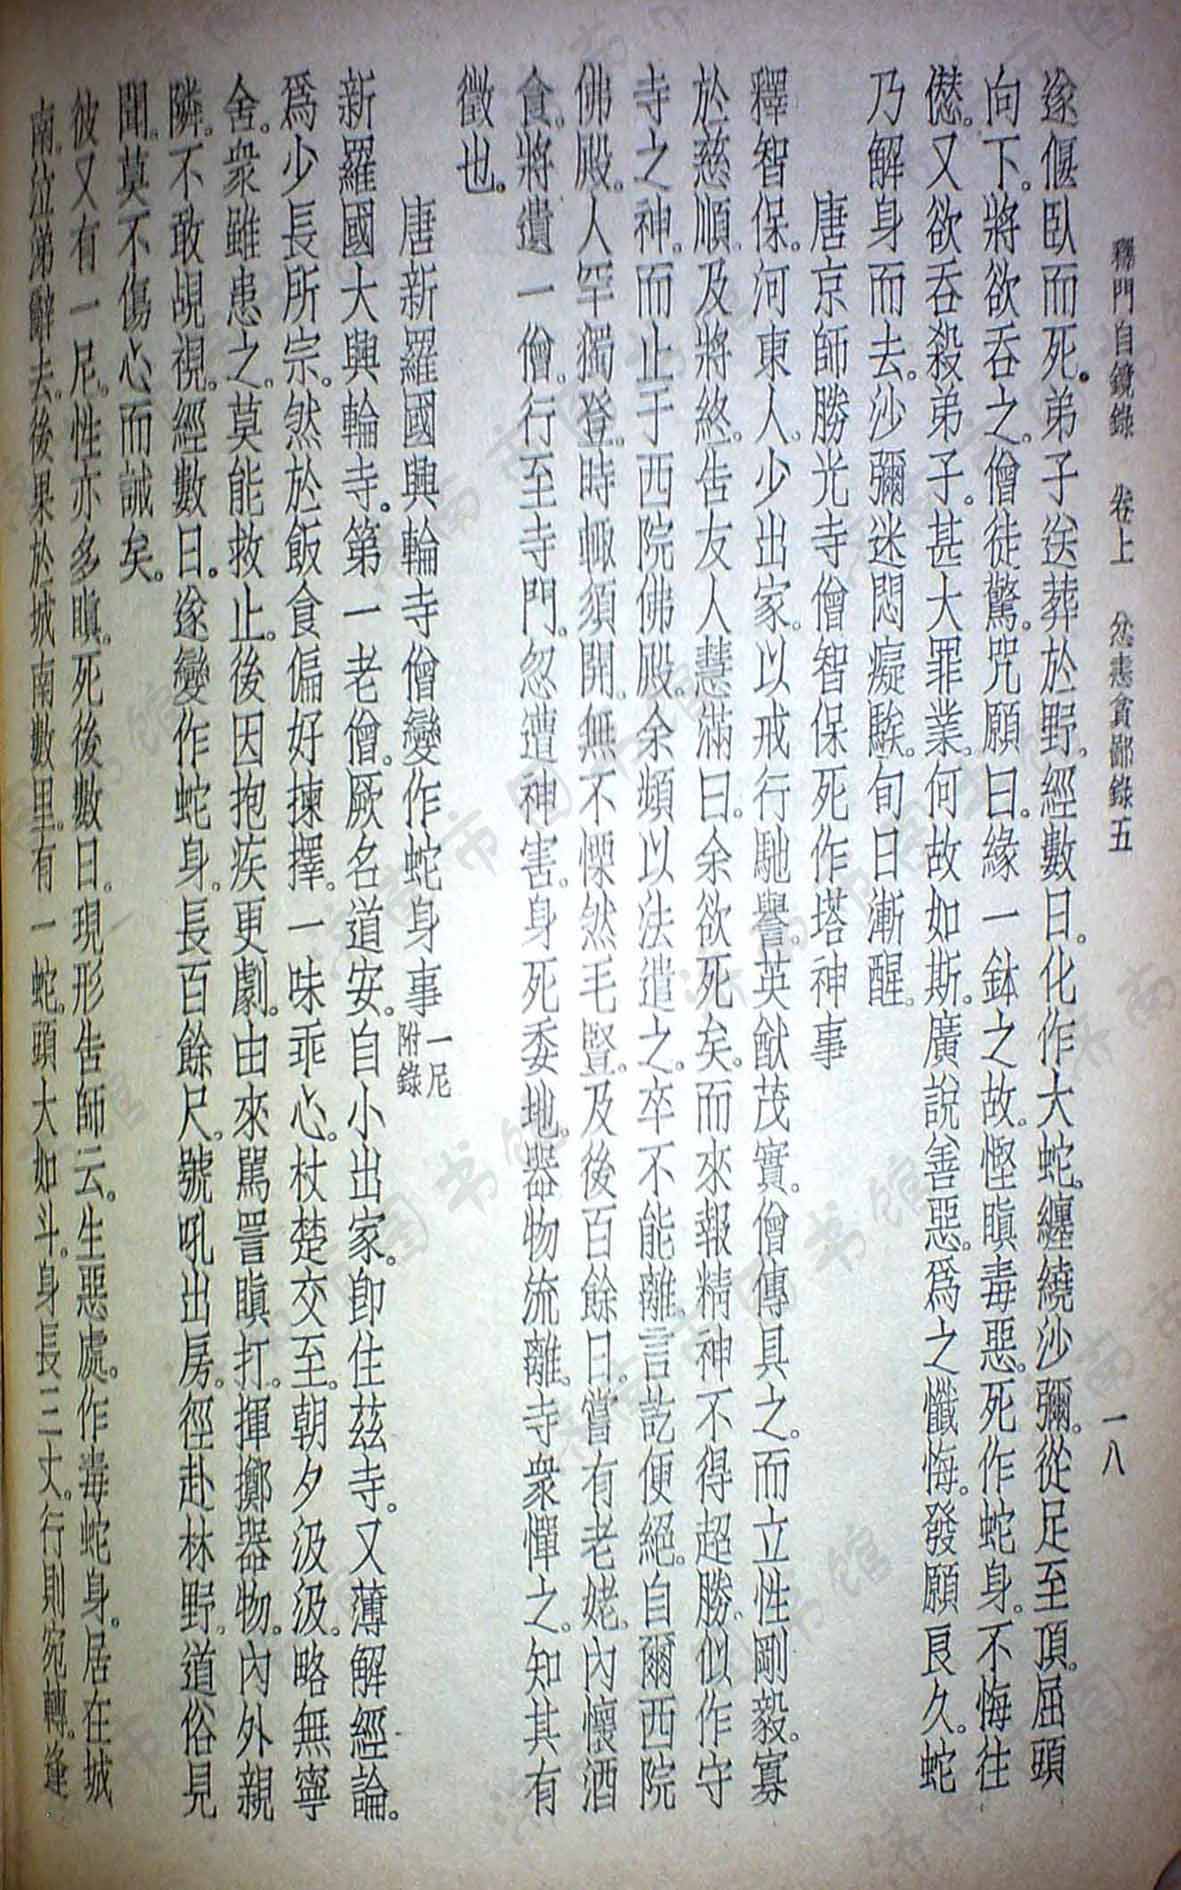 釋門自鏡錄　卷上　忿恚貪鄙錄五　一八
遂偃臥而死。弟子送葬於野。經數日。化作大蛇。纏繞沙彌。從足至頂。屈頭
向下。將欲吞之。僧徒驚。咒願曰。緣一鉢之故。慳瞋毒惡。死作蛇身。不悔往
𠎝。又欲吞殺弟子。甚大罪業。何故如斯。廣說善惡。爲之懺悔。發願良久。蛇
乃解身而去。沙彌迷悶癡騃。旬日漸醒。
唐京師勝光寺僧智保死作塔神事
釋智保。河東人。少出家。以戒行馳譽。英猷茂實。僧傳具之。而立性剛毅。寡
於慈順。及將終。告友人慧滿曰。余欲死矣。而來報精神不得超勝。似作守
寺之神。而止于西院佛殿。余頻以法遣之。卒不能離。言訖便絕。自爾西院
佛殿。人罕獨登。時輙須開。無不慄然毛豎。及後百餘日。嘗有老姥。內懷酒
食。將遺一僧。行至寺門。忽遭神害。身死委地。器物流離。寺衆憚之。知其有
徵也。
唐新羅國興輪寺僧變作蛇身事 一尼附錄
新羅國大興輪寺。第一老僧。厥名道安。自小出家。卽住茲寺。又薄解經論。
爲少長所宗。然於飯食偏好揀擇。一味乖心。杖楚交至。朝夕汲汲。略無寧
舍。衆雖患之。莫能救止。後因抱疾更劇。由來罵詈瞋打。揮擲器物。內外親
隣。不敢覘視。經數日。遂變作蛇身。長百餘尺。號吼出房。徑赴林野。道俗見
聞。莫不傷心而誡矣。
彼又有一尼。性亦多瞋。死後數日。現形告師云。生惡處。作毒蛇身。居在城
南。泣涕辭去。後果於城南數里。有一蛇。頭大如斗。身長三丈。行則宛轉。逢